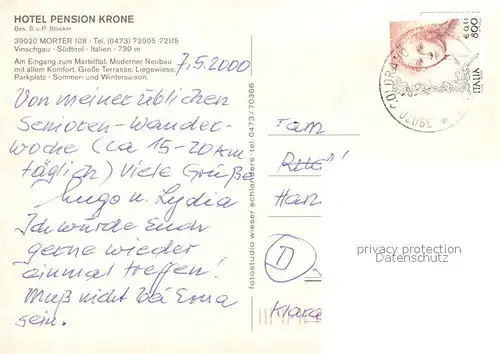 HOTEL PENSION KRONE
Bes. S. u. P. Stocker
39020 MORTER 108 · Tel. (0473) 72005-72115
Vinschgau · Südtirol · Italien · 730 m
Am Eingang zum Martelltal. Moderner Neubau
mit allem Komfort. Große Terrasse, Liegewiese,
Parkplatz · Sommer- und Wintersaison.
7.5.2000
Von meiner üblichen
Senioren-Wander-
woche (ca 15-20 km
täglich) Viele Grüße
Hugo u. Lydia
Ich würde Euch
gerne wieder
einmal treffen!
Muß nicht bei Erna
sein.
fotostudio wieser schlanders tel. 0473/70366
Fam
Han
D
Klare
€ 0,41
800
ITALIA
COLDRANO
39020
privacy protection
Datenschutz